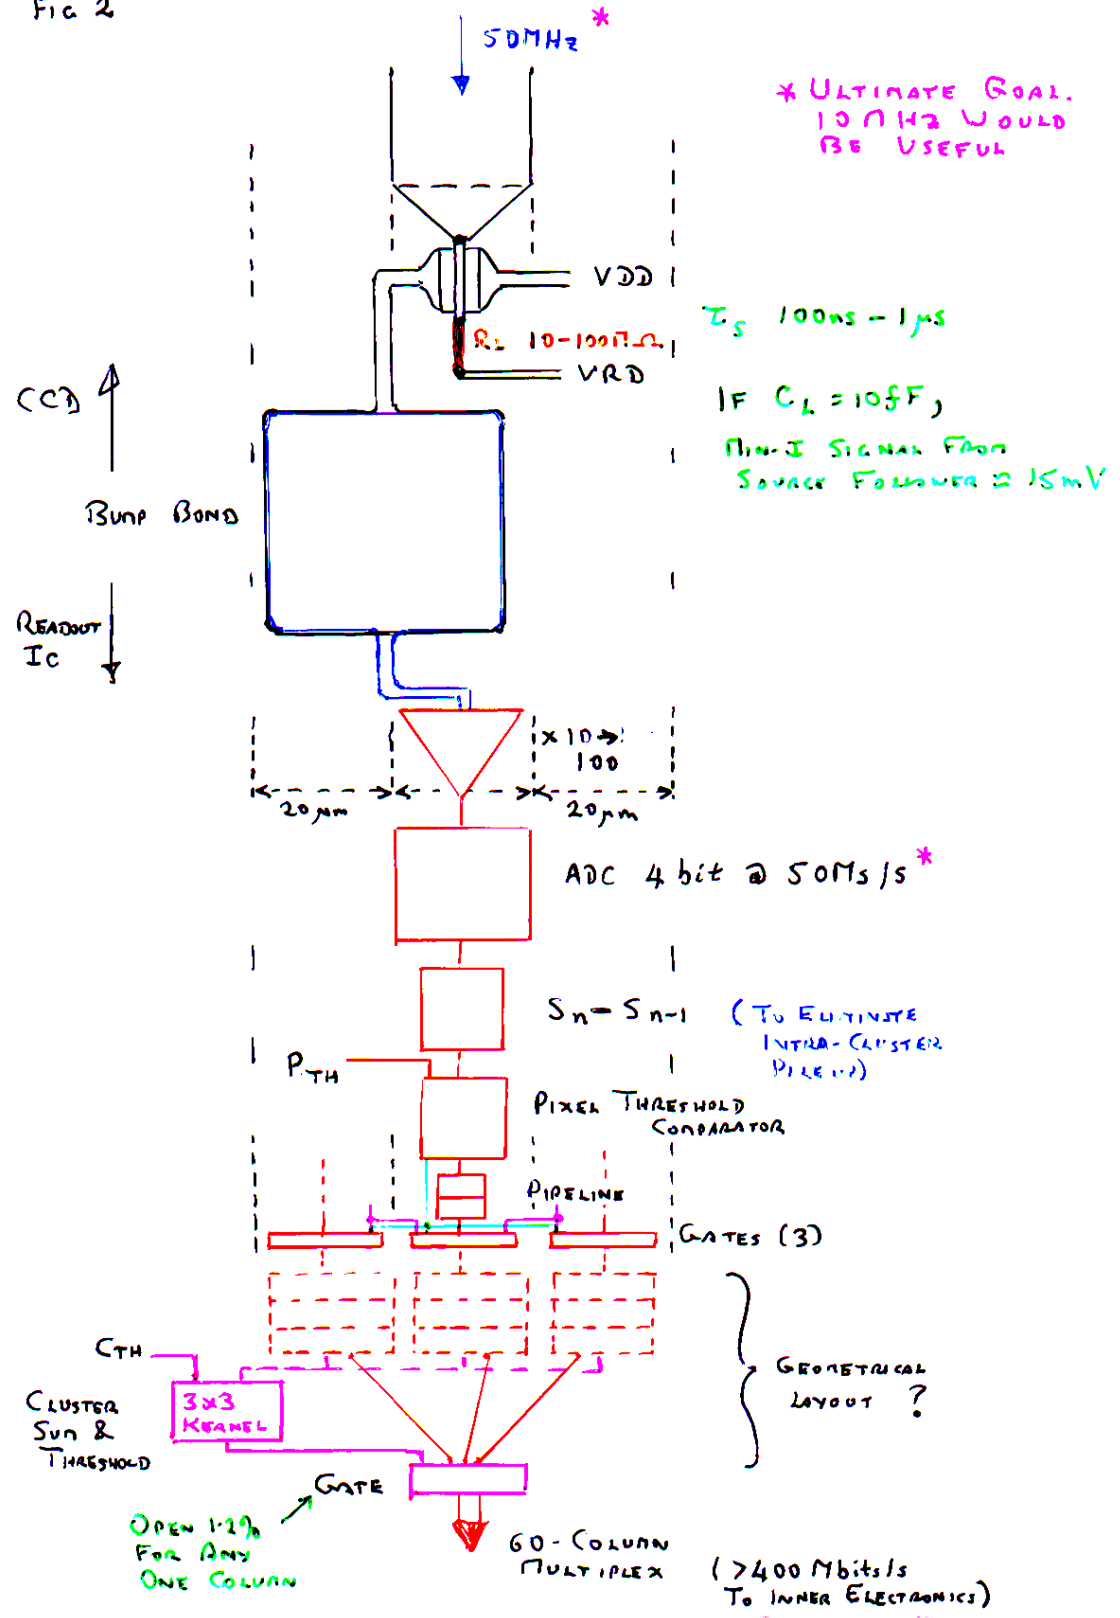 FIG 2
50MHz *
* ULTIMATE GOAL.
10MHz WOULD
BE USEFUL
VDD
τs 100ns - 1μs
RL 10-100MΩ
VRD
CCD
IF CL = 10fF,
MIN-I SIGNAL FROM
SOURCE FOLLOWER ≈ 15mV
BUMP BOND
READOUT
IC
×10→
100
20μm
20μm
ADC 4 bit @ 50Ms/s *
Sn - Sn-1
(TO ELIMINATE
INTRA-CLUSTER
PILEUP)
PTH
PIXEL THRESHOLD
COMPARATOR
PIPELINE
GATES (3)
CTH
GEOMETRICAL
LAYOUT ?
3x3
KERNEL
CLUSTER
SUM &
THRESHOLD
GATE
OPEN 1.2%
FOR ANY
ONE COLUMN
60-COLUMN
MULTIPLEX
(>400 Mbits/s
TO INNER ELECTRONICS)